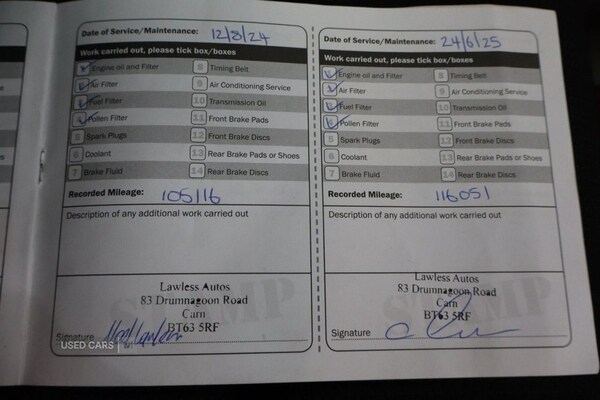 Date of Service/Maintenance: 12/8/24
Work carried out, please tick box/boxes
1 Engine oil and Filter 8 Timing Belt
2 Air Filter 9 Air Conditioning Service
3 Fuel Filter 10 Transmission Oil
4 Pollen Filter 11 Front Brake Pads
5 Spark Plugs 12 Front Brake Discs
6 Coolant 13 Rear Brake Pads or Shoes
7 Brake Fluid 14 Rear Brake Discs
Recorded Mileage: 105116
Description of any additional work carried out
STAMP
Lawless Autos
83 Drumnagoon Road
Carn
BT63 5RF
Signature
USED CARS
Date of Service/Maintenance: 24/6/25
Work carried out, please tick box/boxes
1 Engine oil and Filter 8 Timing Belt
2 Air Filter 9 Air Conditioning Service
3 Fuel Filter 10 Transmission Oil
4 Pollen Filter 11 Front Brake Pads
5 Spark Plugs 12 Front Brake Discs
6 Coolant 13 Rear Brake Pads or Shoes
7 Brake Fluid 14 Rear Brake Discs
Recorded Mileage: 116051
Description of any additional work carried out
STAMP
Lawless Autos
83 Drumnagoon Road
Carn
BT63 5RF
Signature